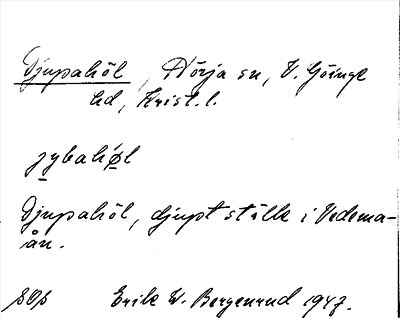 Djupahöl, Nörja sn, V. Göinge
hd, Krist. l.
jybahøl
Djupahöl, djupt ställe i Vedema-
ån.
Erik W. Bergenrud 1947.